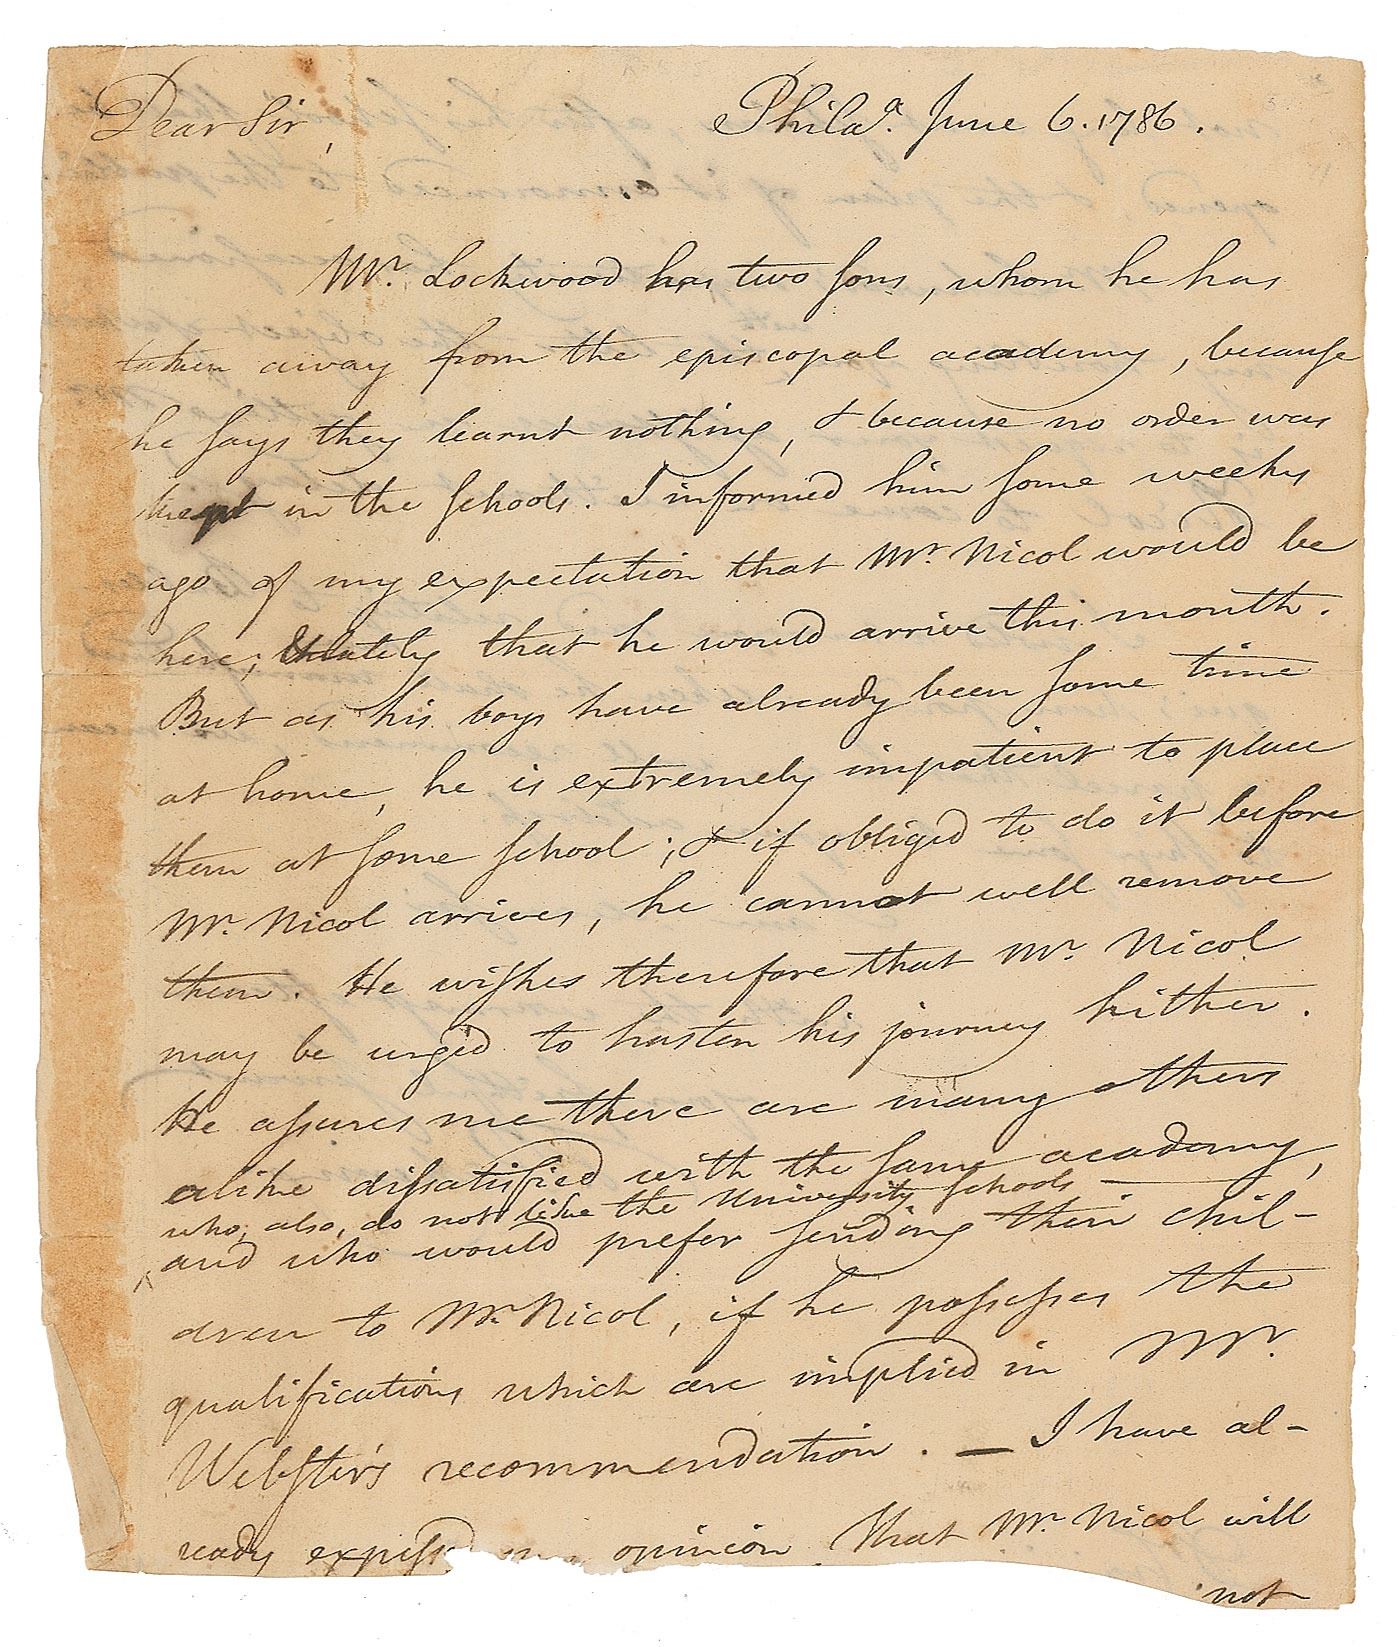 Dear Sir, Philaᵃ. June 6. 1786.
Mr. Lockwood has two sons, whom he has
taken away from the episcopal academy, because
he says they learnt nothing, & because no order was
kept in the schools. I informed him some weeks
ago of my expectation that Mr. Nicol would be
here; & lately that he would arrive this month.
But as his boys have already been some time
at home, he is extremely impatient to place
them at some school; & if obliged to do it before
Mr. Nicol arrives, he cannot well remove
them. He wishes therefore that Mr. Nicol
may be urged to hasten his journey hither.
He assures me there are many others
alike dissatisfied with the same academy,
who, also, do not like the University schools —
^ and who would prefer sending their chil-
dren to Mr. Nicol, if he possesses the
qualifications which are implied in Mr.
Webster's recommendation. — I have al-
ready opinion that Mr. Nicol will
not